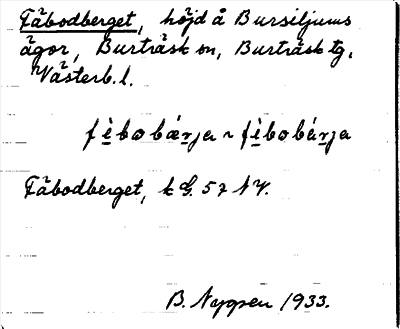 Fäbodberget, höjd å Bursiljums
ägor, Burträsk sn, Burträsk tg,
Västerb. l.
fèbobǽrja ~ fèbobárja
Fäbodberget, k G. 57 NV.
B. 1933.